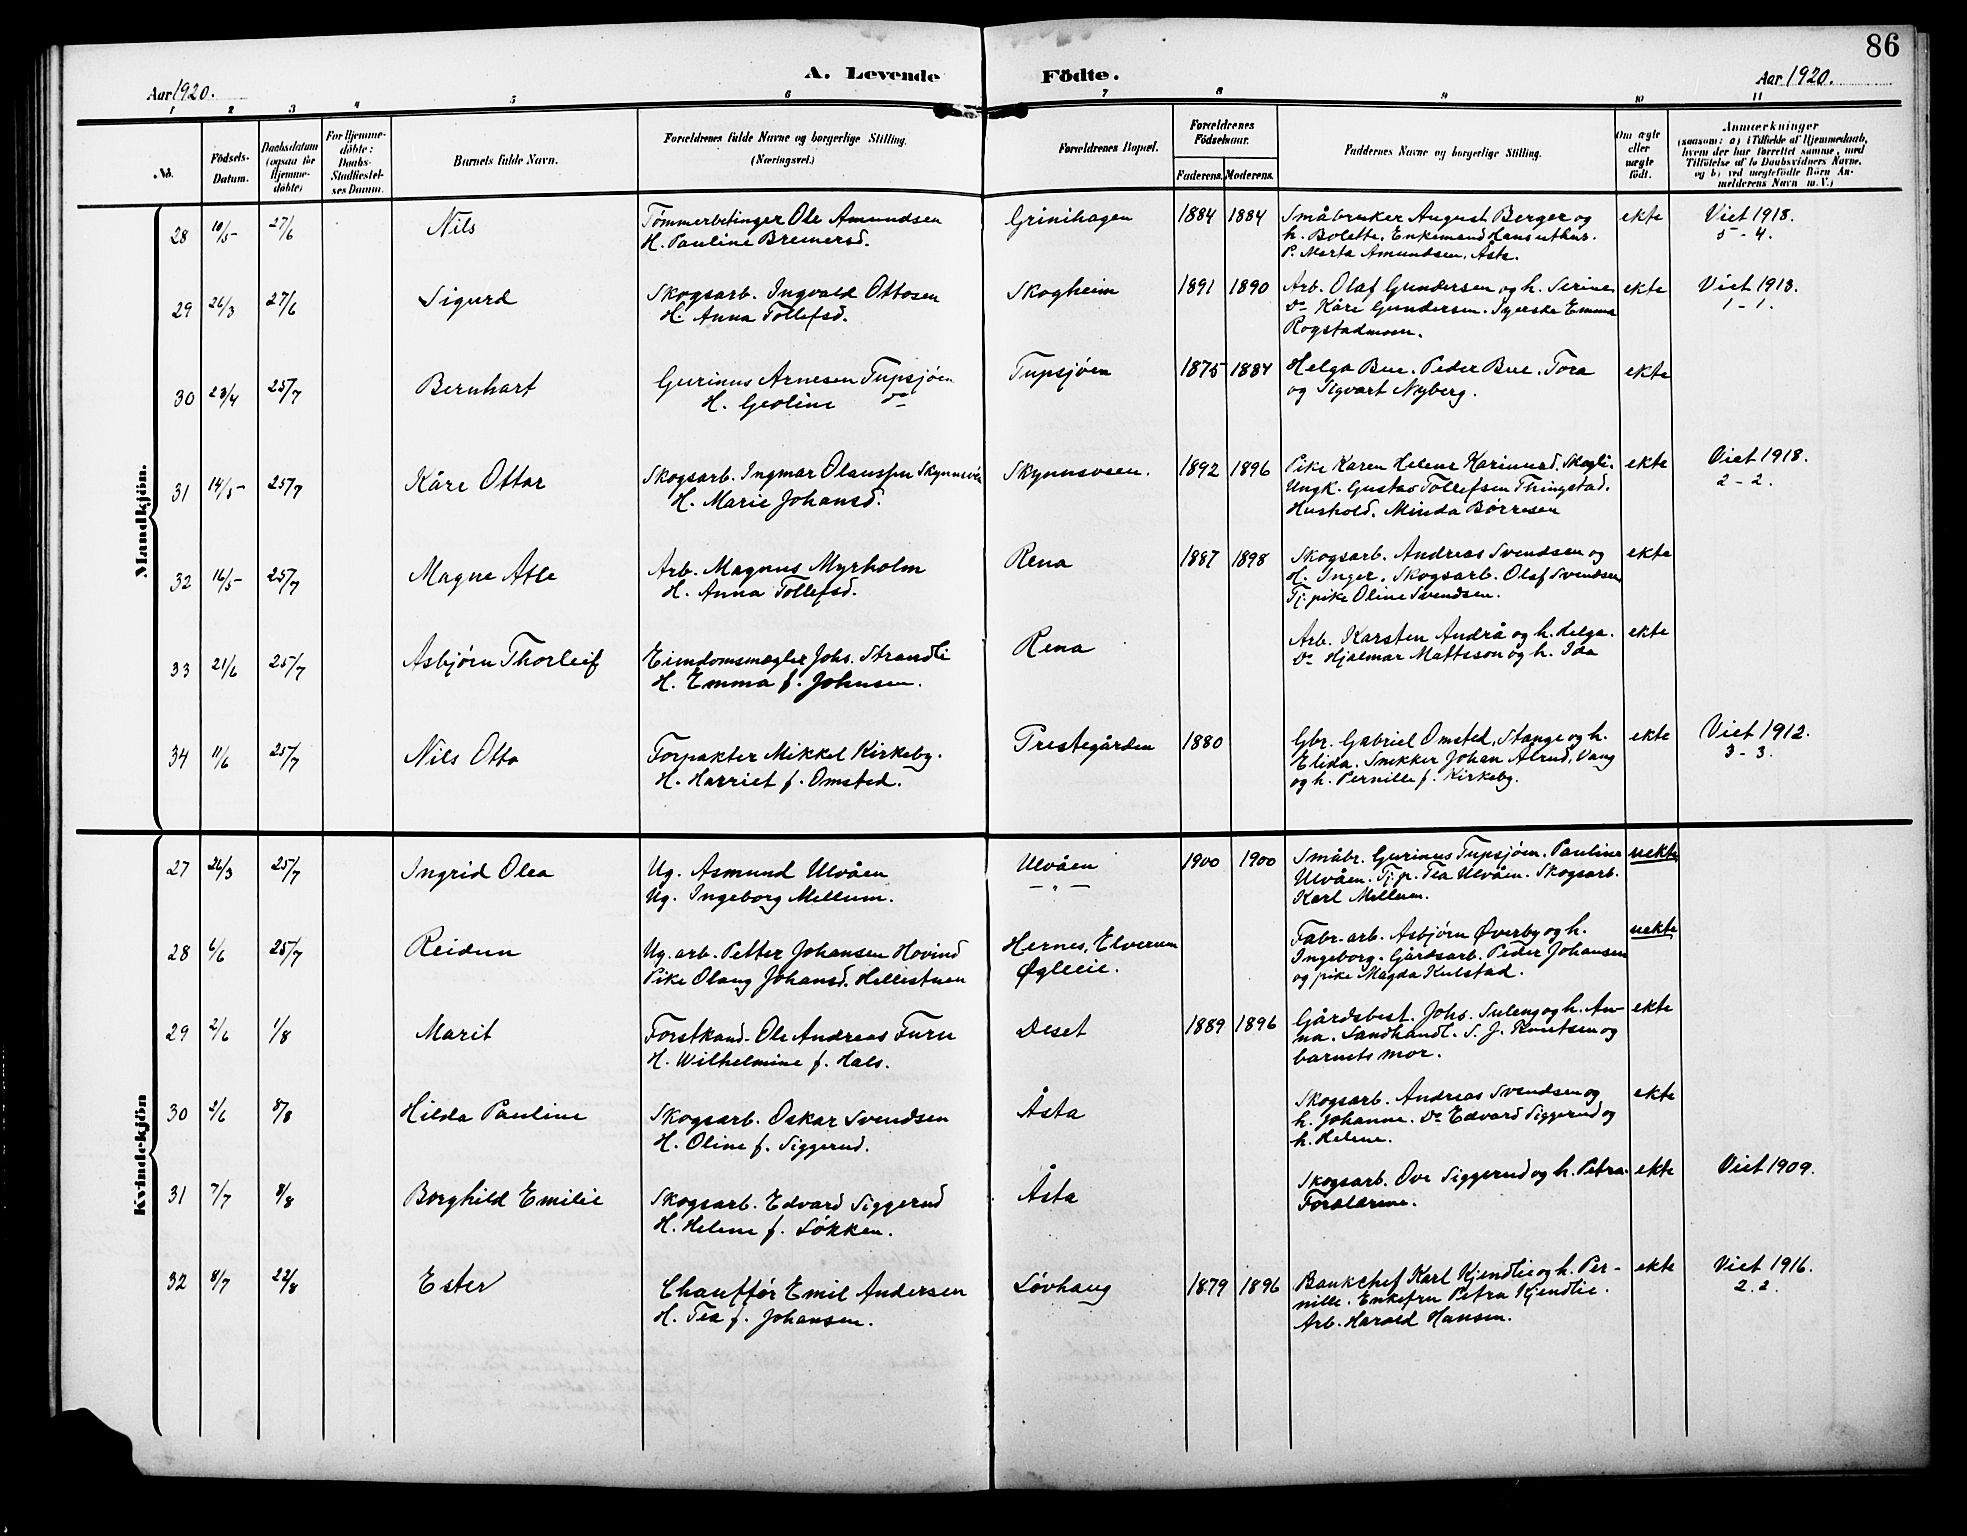 86
A. Levende Födte.
Aar 1920.
Aar 1920.
1 2 3 4 5 6 7 8 9 10 11
No.
Födsels-Datum.
Daabsdatum (ogsaa for Hjemme-döbte)
For Hjemme-döbte: Daabs-Stadfæstel-ses Datum.
Barnets fulde Navn.
Forældrenes fulde Navne og borgerlige Stilling. (Næringsvei.)
Forældrenes Bopæl.
Forældrenes Födselsaar.
Faderens. Moderens.
Faddernes Navne og borgerlige Stilling.
Om ægte eller uægte födt.
Anmærkninger
(saasom: a) i Tilfælde af Hjemmedaab, hvem der har forrettet samme, med Tilföielse af to Daabsvidners Navne, og b) ved uægtefödte Börn An-melderens Navn m. V.)
Mandkjön.
28 10/5- 27/6 Nils Tømmerbetinger Ole Amundsen Grinihagen 1884 1884 Småbruker August Berger og ekte Viet 1918.
H. Pauline Bremersd. h. Bolette. Enkemand Hans 5 - 4.
P. Marta Amundsen, Åsta.
29 26/3 27/6 Sigurd Skogsarb. Ingvald Ottosen Skogheim 1891 1890 Arb. Olaf Gundersen og h. Serine ekte Viet 1913.
H. Anna Tollefsd. Do Kåre Gundersen. Syerske Emma 1 - 1.
Rogstadmoen.
30 23/4 25/7 Bernhart Gurinus Arnesen Tupsjøen Tupsjöen 1875 1884 Helga Bue. Peder Bue. Tora ekte
H. Geoline do og Ilgvart Nyberg.
31 14/5- 25/7 Kåre Ottar Skogsarb. Ingmar Olaussen Skynnsveen Skynnsveen. 1892 1896 Pike Karen Helene Karinusd. Skogli. ekte Viet 1918.
H. Marie Johansd. Ungk. Gustav Tollefsen Thingstad. 2 - 2.
Hushold. Minda Børresen
32 16/5- 25/7 Magne Atle Arb. Magnus Myrholm Rena 1887 1898 Skogsarb. Andreas Svendsen og ekte
H. Anna Tollefsd. H. Inger. Skogsarb. Olaf Svendsen
Tj. pike Oline Svendsen.
33 21/6 25/7 Asbjørn Thorleif Eiendomsmægler Johs. Strandli Rena Arb. Karsten Andrå og h. Helga. ekte
H. Emma f. Johnsen. Do Hjalmar Mattsson og h. Ida
34 11/6 25/7 Nils Otto Forpakter Mikkel Kirkeby. Prestegården 1880 Gbr. Gabriel Omsted, Stange og h. ekte Viet 1912.
H. Harriet f. Omsted. Elida. Snekker Johan Alrud, Vang 3 - 3.
og h. Pernille f. Kirkeby.
Kvindekjön
27 26/3 25/7 Ingrid Olea Ug. Asmund Ulvåen Ulvåen 1900 1900 Småbr. Gurinus Tupsjøen. Pauline uekte
Ug. Ingeborg Mellum. — " — Ulvåen. Tj. p. Tea Ulvåen. Skogsarb.
Karl Mellum.
28 6/6 25/7 Reidun Ug. arb. Petter Johansen Hovind Hernes, Elverum Fabr. arb. Asbjørn Øverby og h. uekte
Pike Olaug Johansd. Hellistuen Øgleie. Ingeborg. Gårdsarb. Peder Johansen
og pike Magda Kulstad.
29 2/6 1/8 Marit Forstkand. Ole Andreas Furu Deset 1889 1896 Gårdsbest. Johs. Suleng og h. An- ekte
H. Wilhelmine f. Hals. na. Landhandl. S. J. Knutsen og
barnets mor.
30 2/6 8/8 Hilda Pauline Skogsarb. Oskar Svendsen Åsta Skogsarb. Andreas Svendsen og ekte
H. Oline f. Siggerud. h. Johanne. Do Edvard Siggerud og
h. Helene.
31 7/7 8/8 Borghild Emilie Skogsarb. Edvard Siggerud Åsta Skogsarb. Ove Siggerud og h. Petra. ekte Viet 1909.
H. Helene f. Løkken. Forældrene.
32 8/7 22/8 Ester Chauffør Emil Andersen Løvhaug 1879 1896 Bankchef Karl Kjendlie og h. Per- ekte Viet 1916.
H. Tea f. Johansen. nille. Enkefru Petra Kjendlie. 2. 2.
Arb. Harald Hansen.